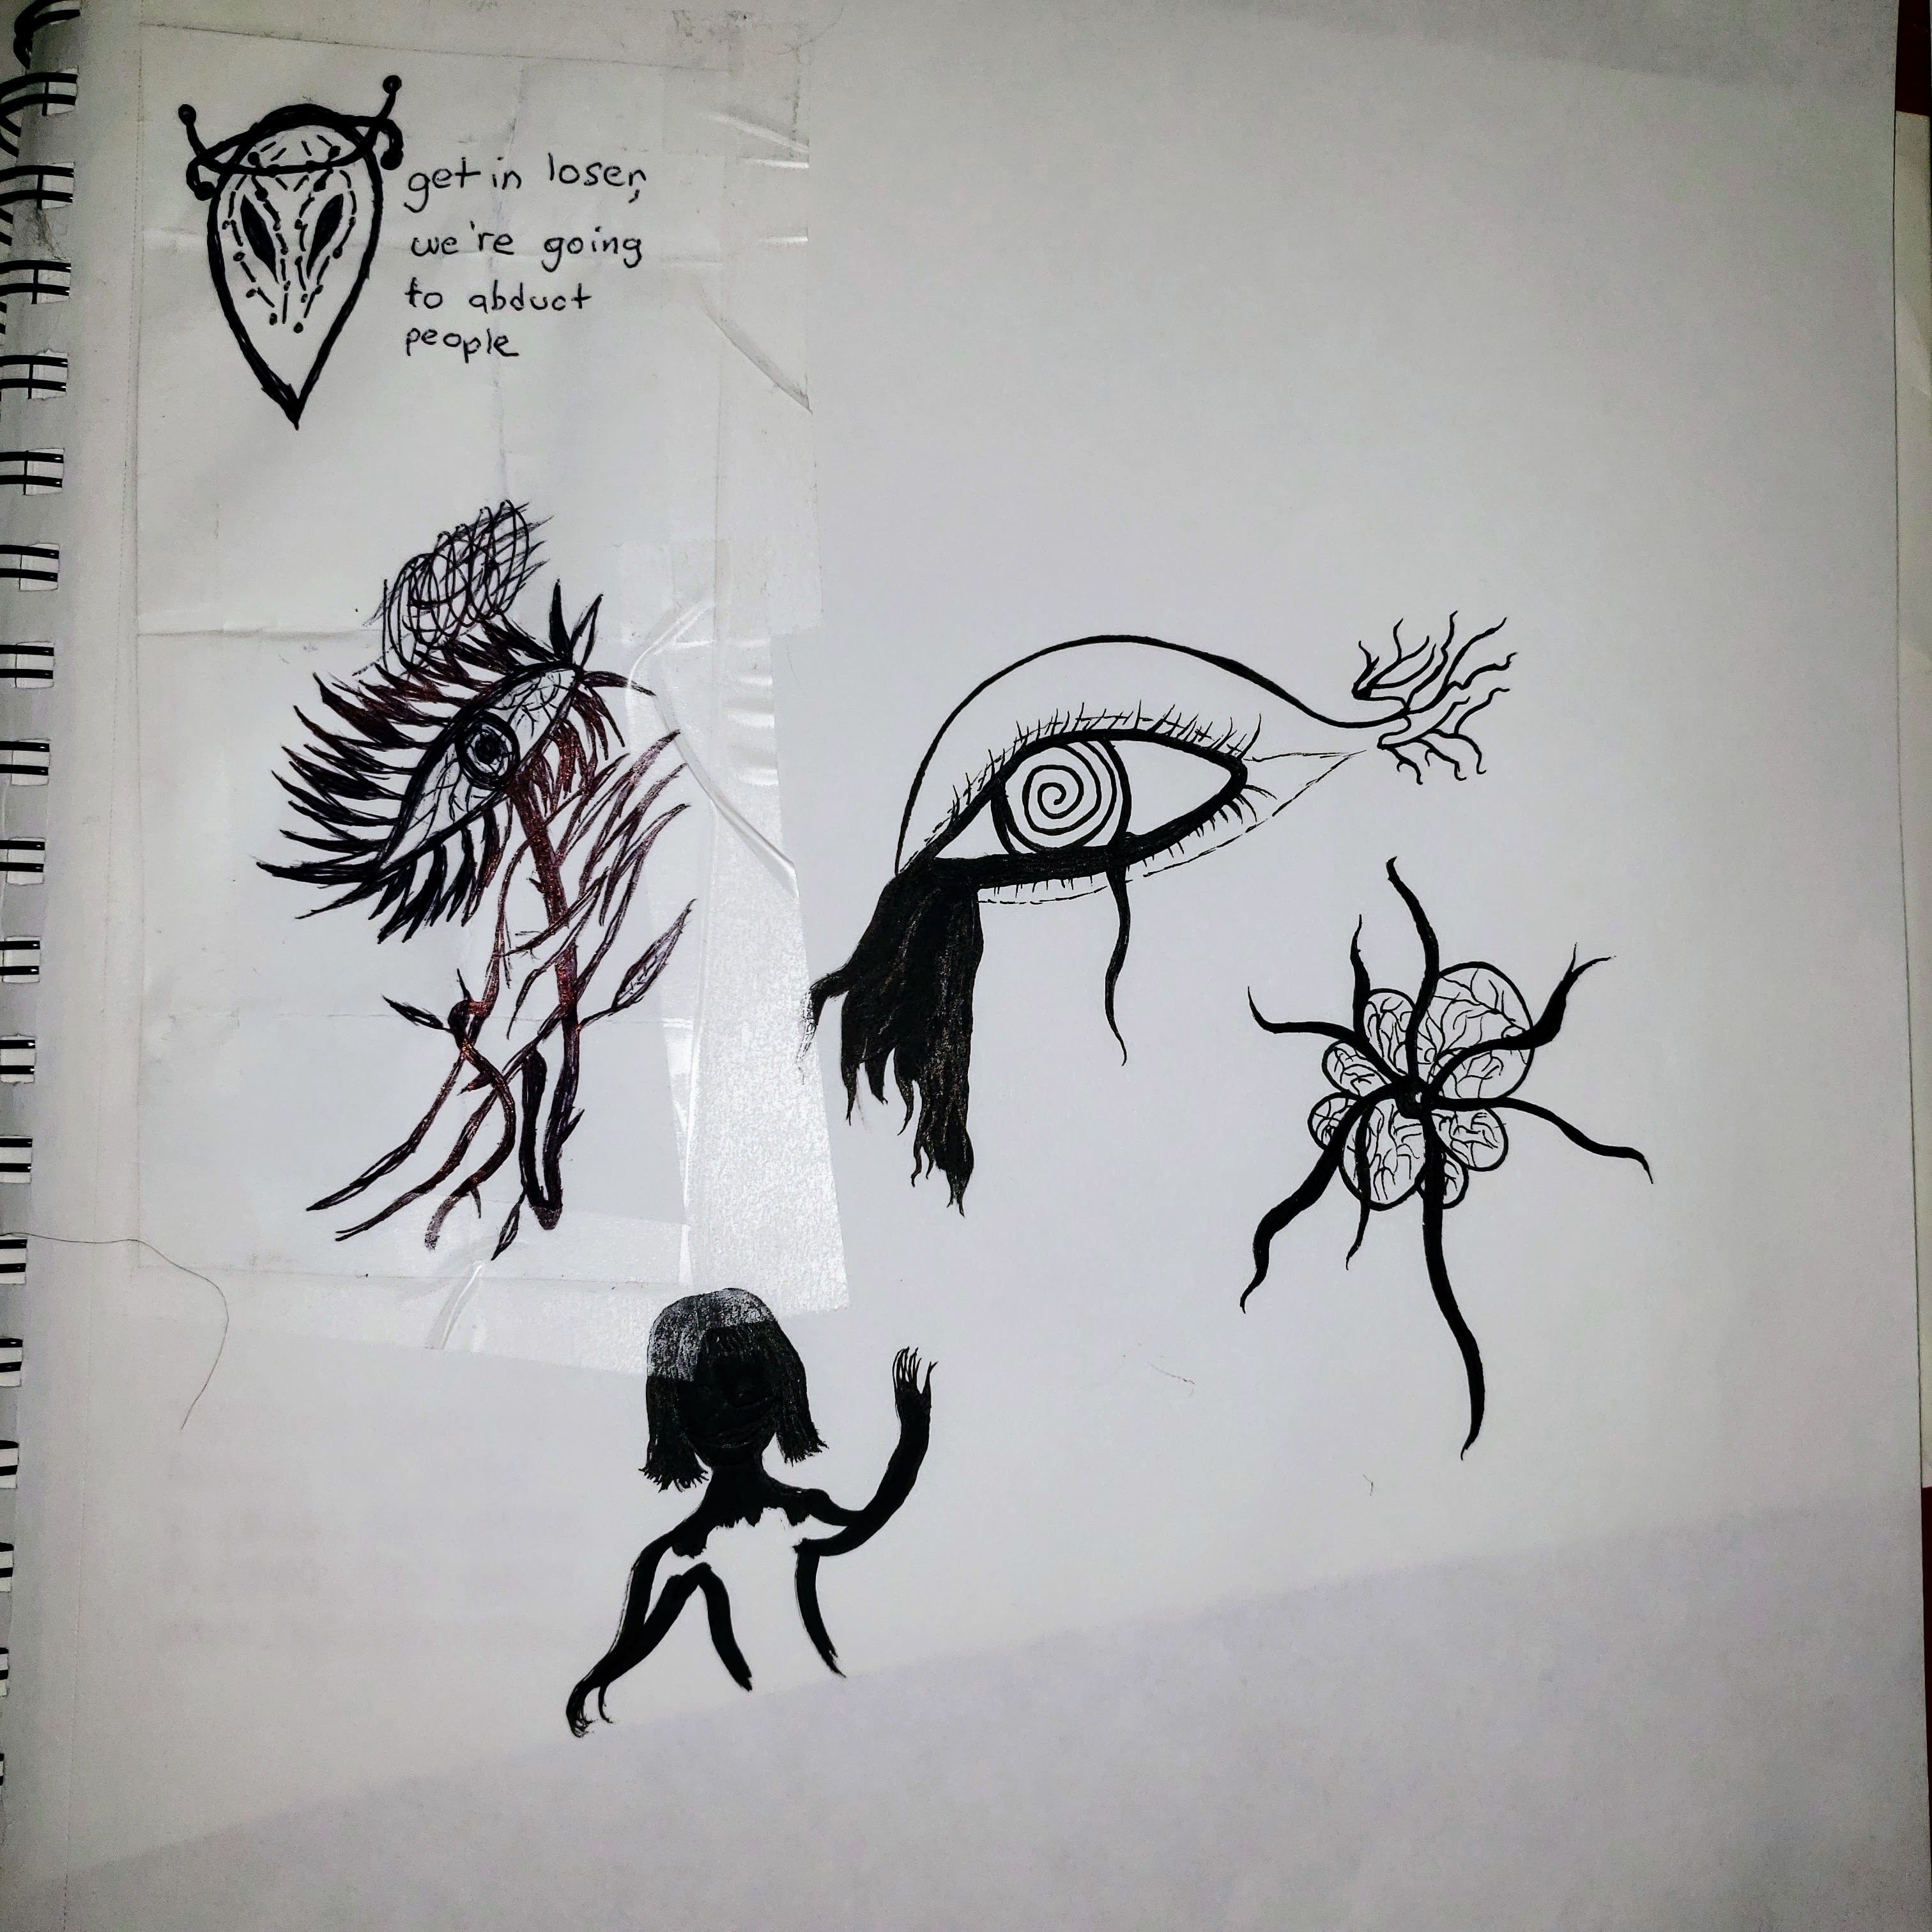 get in loser,
we're going
to abduct
people